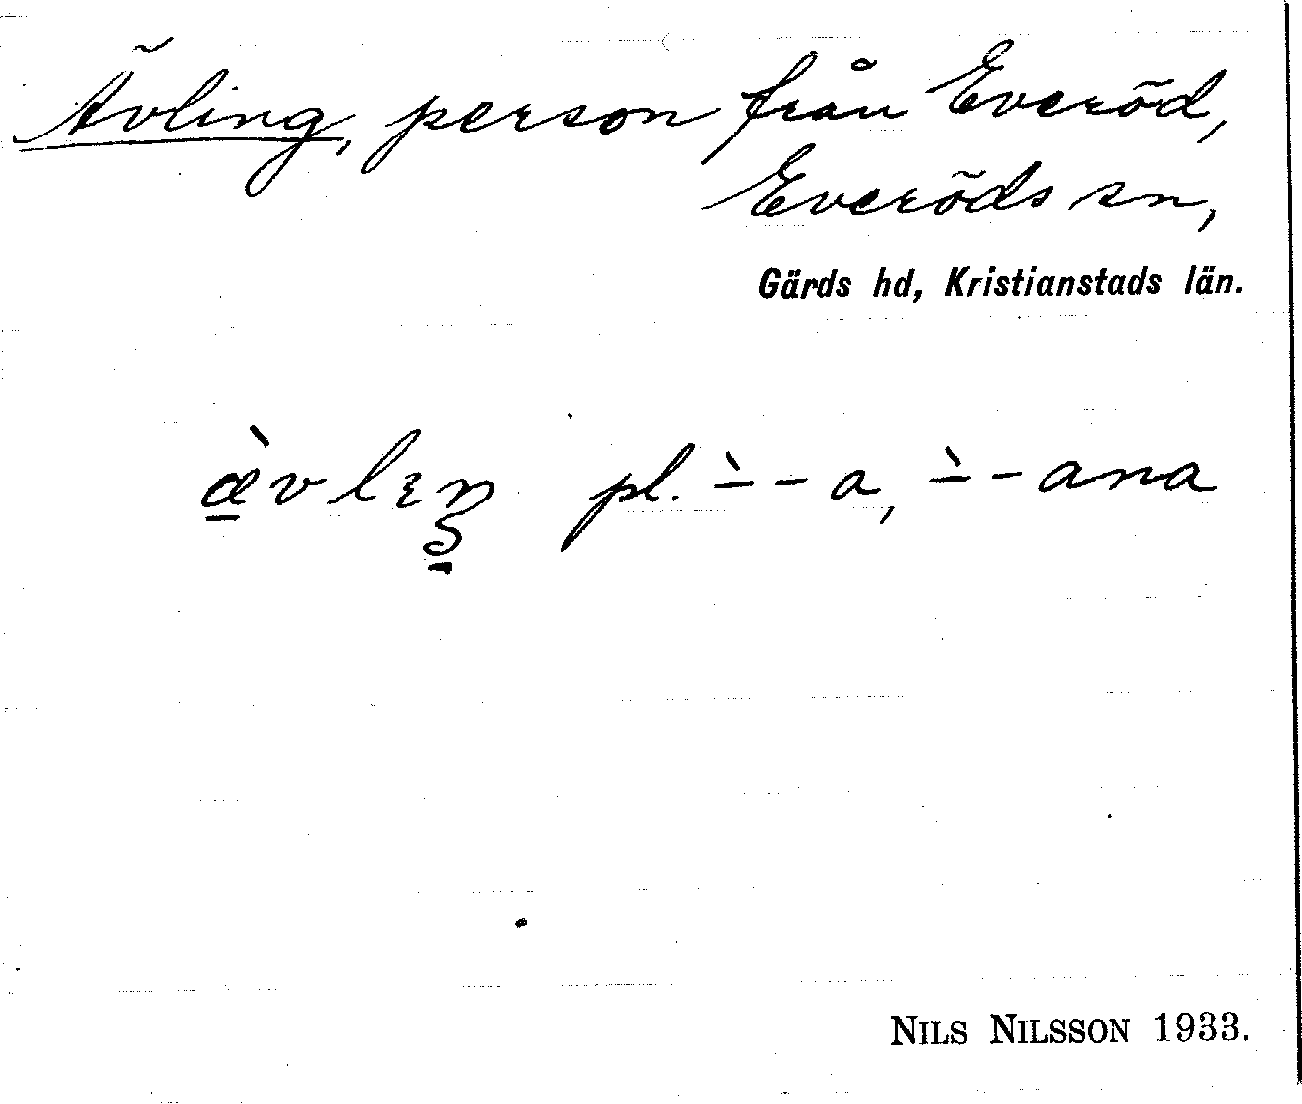 Ävling, person från Everöd,
Everöds sn,
Gärds hd, Kristianstads län.
æ̀vlɛŋ pl. -̀ - a, -̀ - ana
NILS NILSSON 1933.